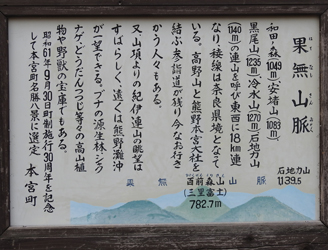 果無山脈
はてなしさんみゃく
和田ノ森1049m)安堵山(1083m)
黒尾山(1235m)冷水山(1270m)石地力山
(1140m)の連山を呼び東西に18km連
なり稜線は奈良県境となて
いる。高野山と熊野本宮大社を
結ぶ参詣道が残り今なお行き
かう人々もある。
又山頂よりの紀伊連山の眺望は
すばらしく、遠くは熊野灘沖
が一望できる。ブナの原生林シヤク
ナゲ、どうだんつつじ等々の高山植
物や野獣の宝庫でもある。
昭和61年9月30日町制施行30周年を記念
して本宮町名勝八景に選定 本宮町
石地力山
1139.5
果無山脈
西前森山
(三里富士)
782.7m